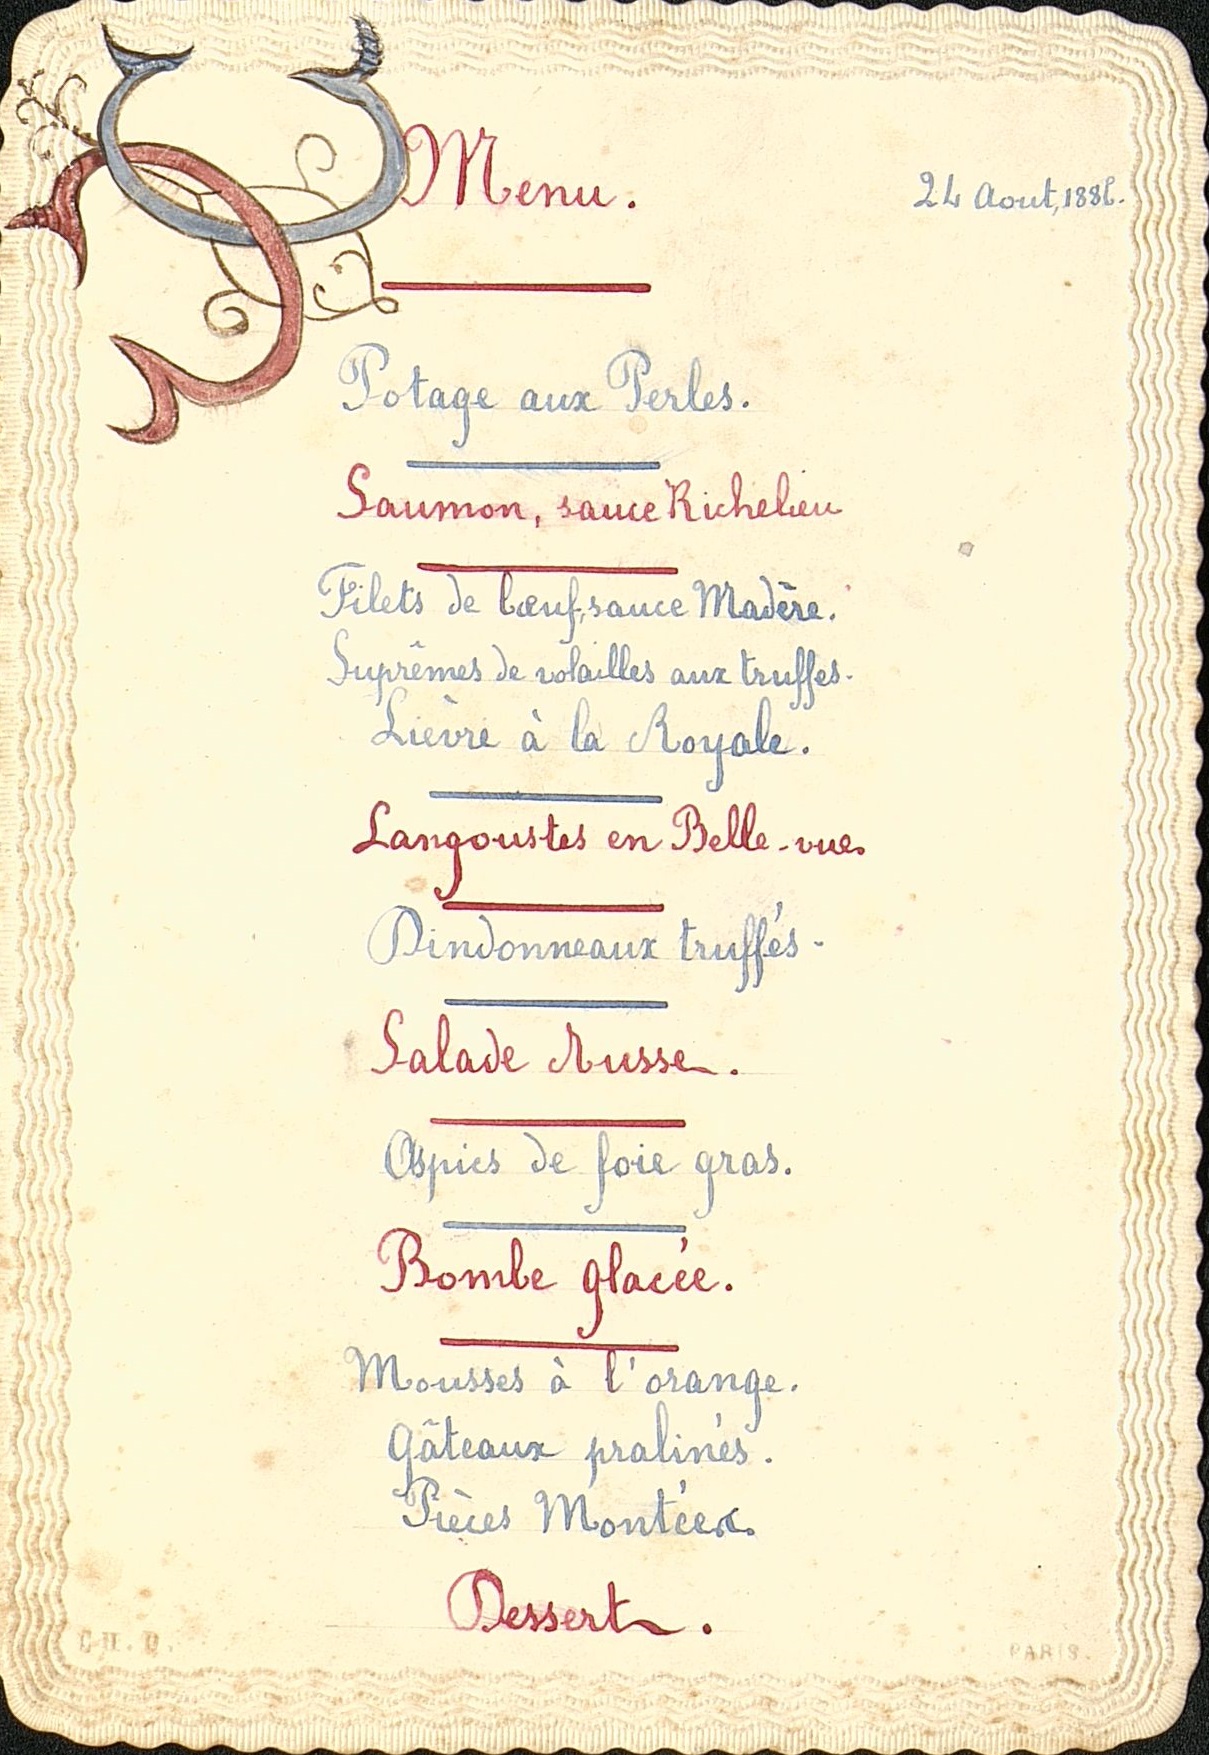 Menu.
24 Aout, 188
Potage aux Perles.
Saumon, sauce Richelieu
Filets de bœuf, sauce Madère.
Suprêmes de volailles aux truffes.
Lièvre à la Royale.
Langoustes en Belle-vue.
Dindonneaux truffés.
Salade Russe.
Aspics de foie gras.
Bombe glacée.
Mousses à l'orange.
Gâteaux pralinés.
Pièces Montées.
Dessert.
PARIS.